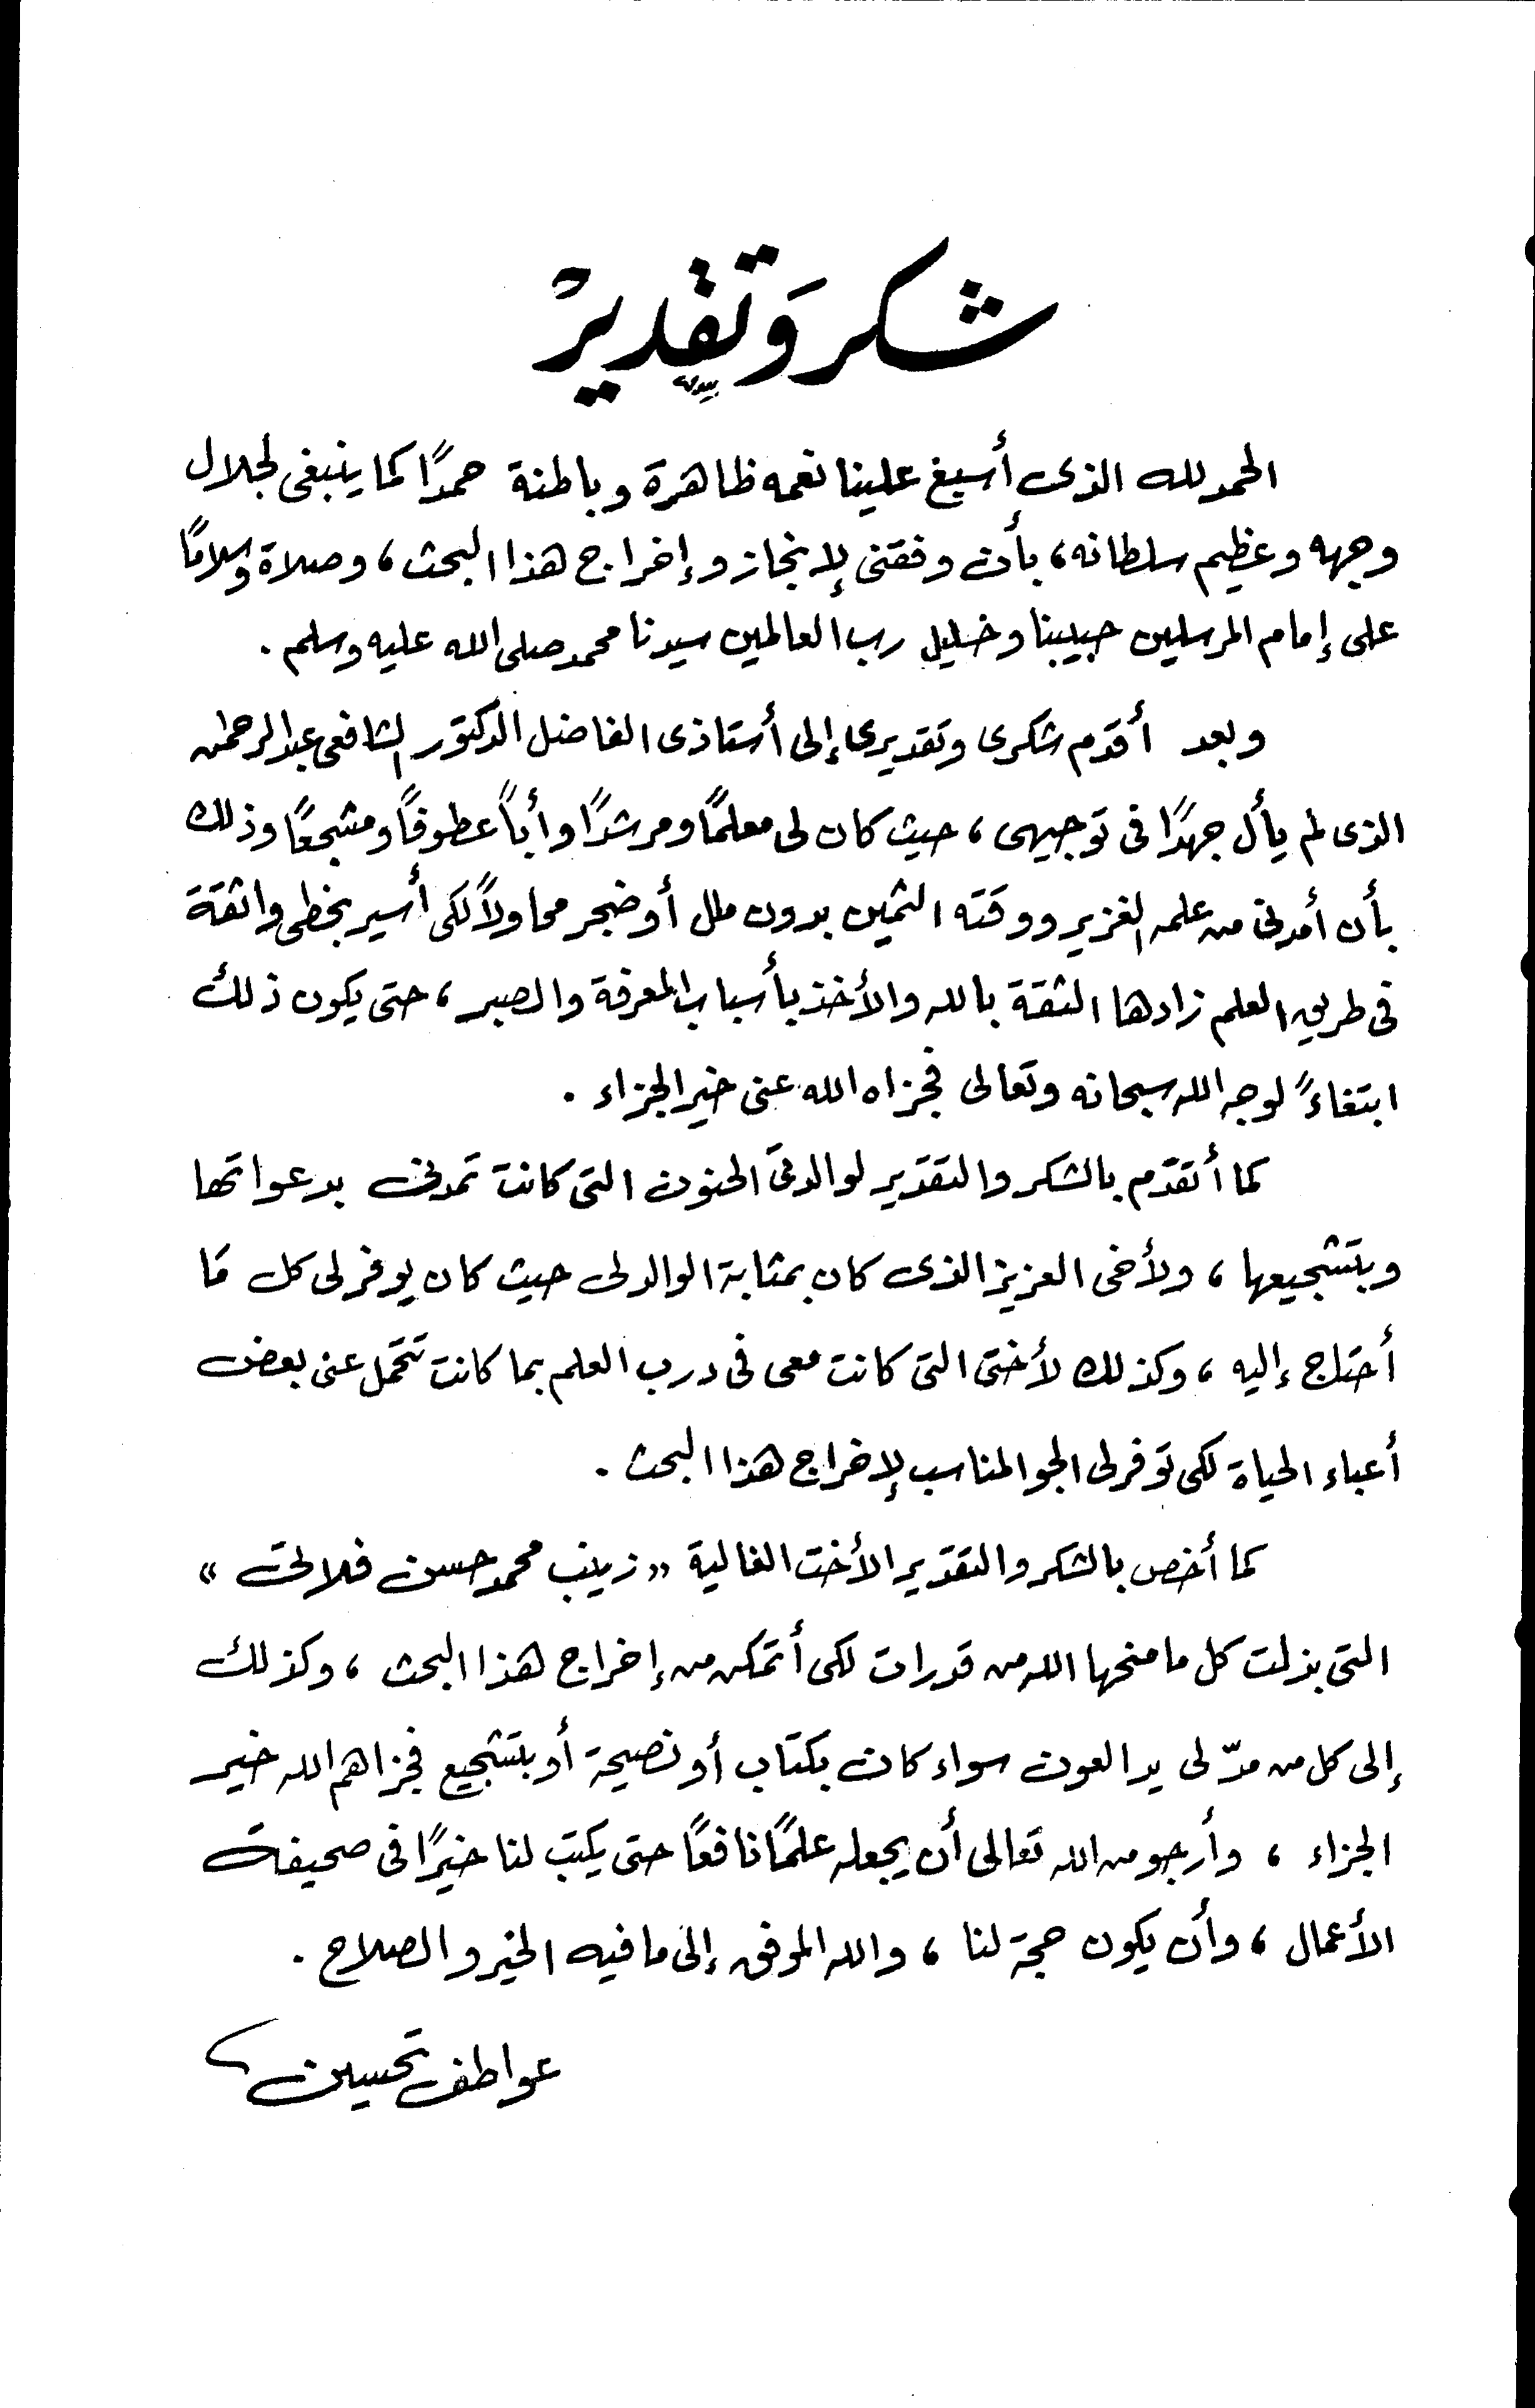 شكر وَتقدير
الحمد لله الذى أسبغ علينا نعمه ظاهرة وباطنة حمدًا كما ينبغى لجلال
وجهه وعظيم سلطانه، بأن وفقنى لإنجاز وإخراج هذا البحث، وصلاة وسلامًا
على إمام المرسلين حبيبنا وخليل رب العالمين سيدنا محمد صلى الله عليه وسلم.
وبعد أقدم شكرى وتقديرى إلى أستاذى الفاضل الدكتور الشافعى عبد الرحمن
الذى لم يأل جهدًا فى توجيهى، حيث كان لى معلمًا ومرشدًا وأباً عطوفاً ومشجعًا وذلك
بأن أمدنى من علمه الغزير ووقته الثمين بدون ملل أو ضجر محاولاً لكى أسير بخطى واثقة
فى طريق العلم زادها الثقة بالله والأخذ بأسباب المعرفة والصبر، حتى يكون ذلك
ابتغاءً لوجه الله سبحانه وتعالى فجزاه الله عنى خير الجزاء.
كما أتقدّم بالشكر والتقدير لوالدتى الحنون التى كانت تمدنى بدعواتها
وبتشجيعها، ولأخى العزيز الذى كان بمثابة الوالد لى حيث كان يوفر لى كل مَا
أحتاج إليه، وكذلك لأختى التى كانت معى فى درب العلم بما كانت تتحمل عنى بعض
أعباء الحياة لكى توفر لى الجو المناسب لإخراج هذا البحث.
كما أخص بالشكر والتقدير الأخت الغالية «زينب محمد حسن فلاتى»
التى بذلت كل ما منحها الله من قدرات لكى أتمكن من إخراج هذا البحث، وكذلك
إلى كل من مدّ لى يد العون سواء كان بكتاب أو نصيحة أو بتشجيع فجزاهم الله خير
الجزاء، وأرجو من الله تعالى أن يجعله علمًا نافعًا حتى يكتب لنا خيرًا فى صحيفة
الأعمال، وأن يكون حجة لنا، والله الموفق إلى ما فيه الخير والصلاح.
عواطف تحسين